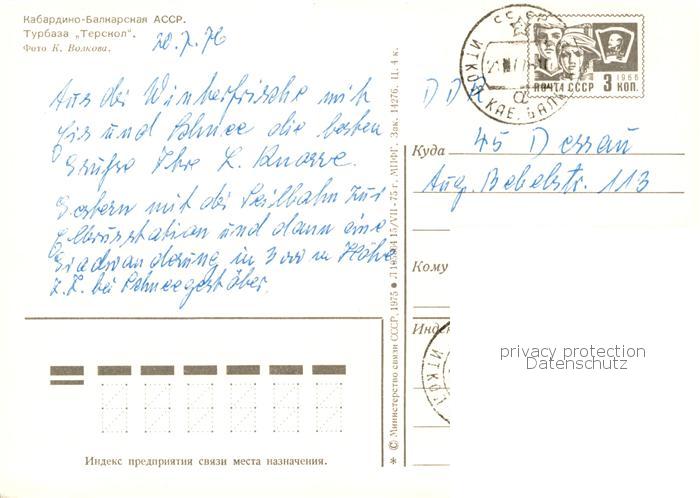 Кабардино-Балкарская АССР.
Турбаза „Терскол".
Фото К. Волкова.
20.7.76
Aus der Winterfrische mit
Eis und Schnee die besten
Grüße Ihr L. Knorre.
Gestern mit der Seilbahn zur
Elbrusstation und dann eine
in 3000 m Höhe
z.T. bei Schneegestöber.
© Министерство связи СССР, 1975 ● 15/VII-75 г. МПФГ. Зак. 14276. Ц. 4 к.
СССР
ПОЧТА СССР 3 КОП.
1966
ИТКОЛ КАБ. БАЛК
DDR
Куда 45 Dessau
Aug. Bebelstr. 113
Кому
Индек
ИТКОЛ
privacy protection
Datenschutz
Индекс предприятия связи места назначения.